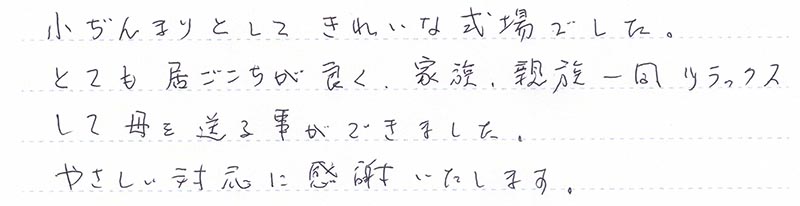 小ぢんまりとしてきれいな式場でした。
とても居ごこちが良く、家族、親族一同リラックス
して母を送る事ができました。
やさしい対応に感謝いたします。